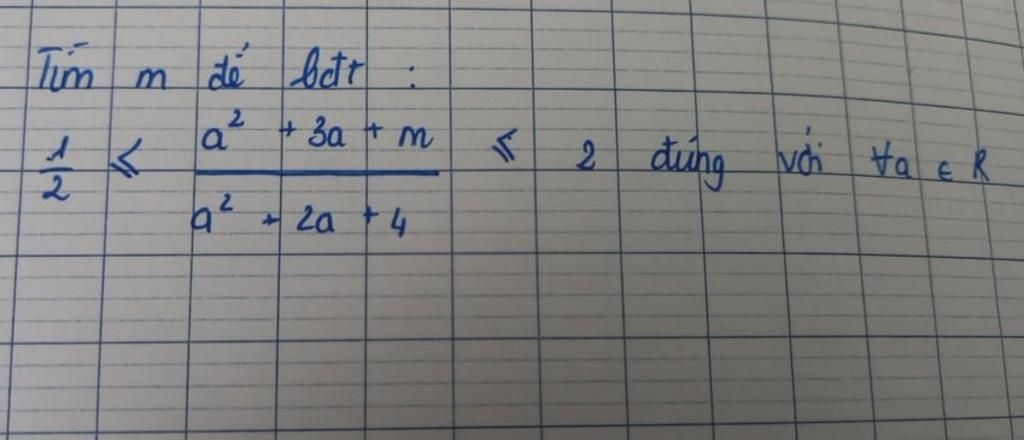 Tìm m để bđt :
1/2 ≤ (a² + 3a + m)/(a² + 2a + 4) ≤ 2 đúng với ∀a ∈ R